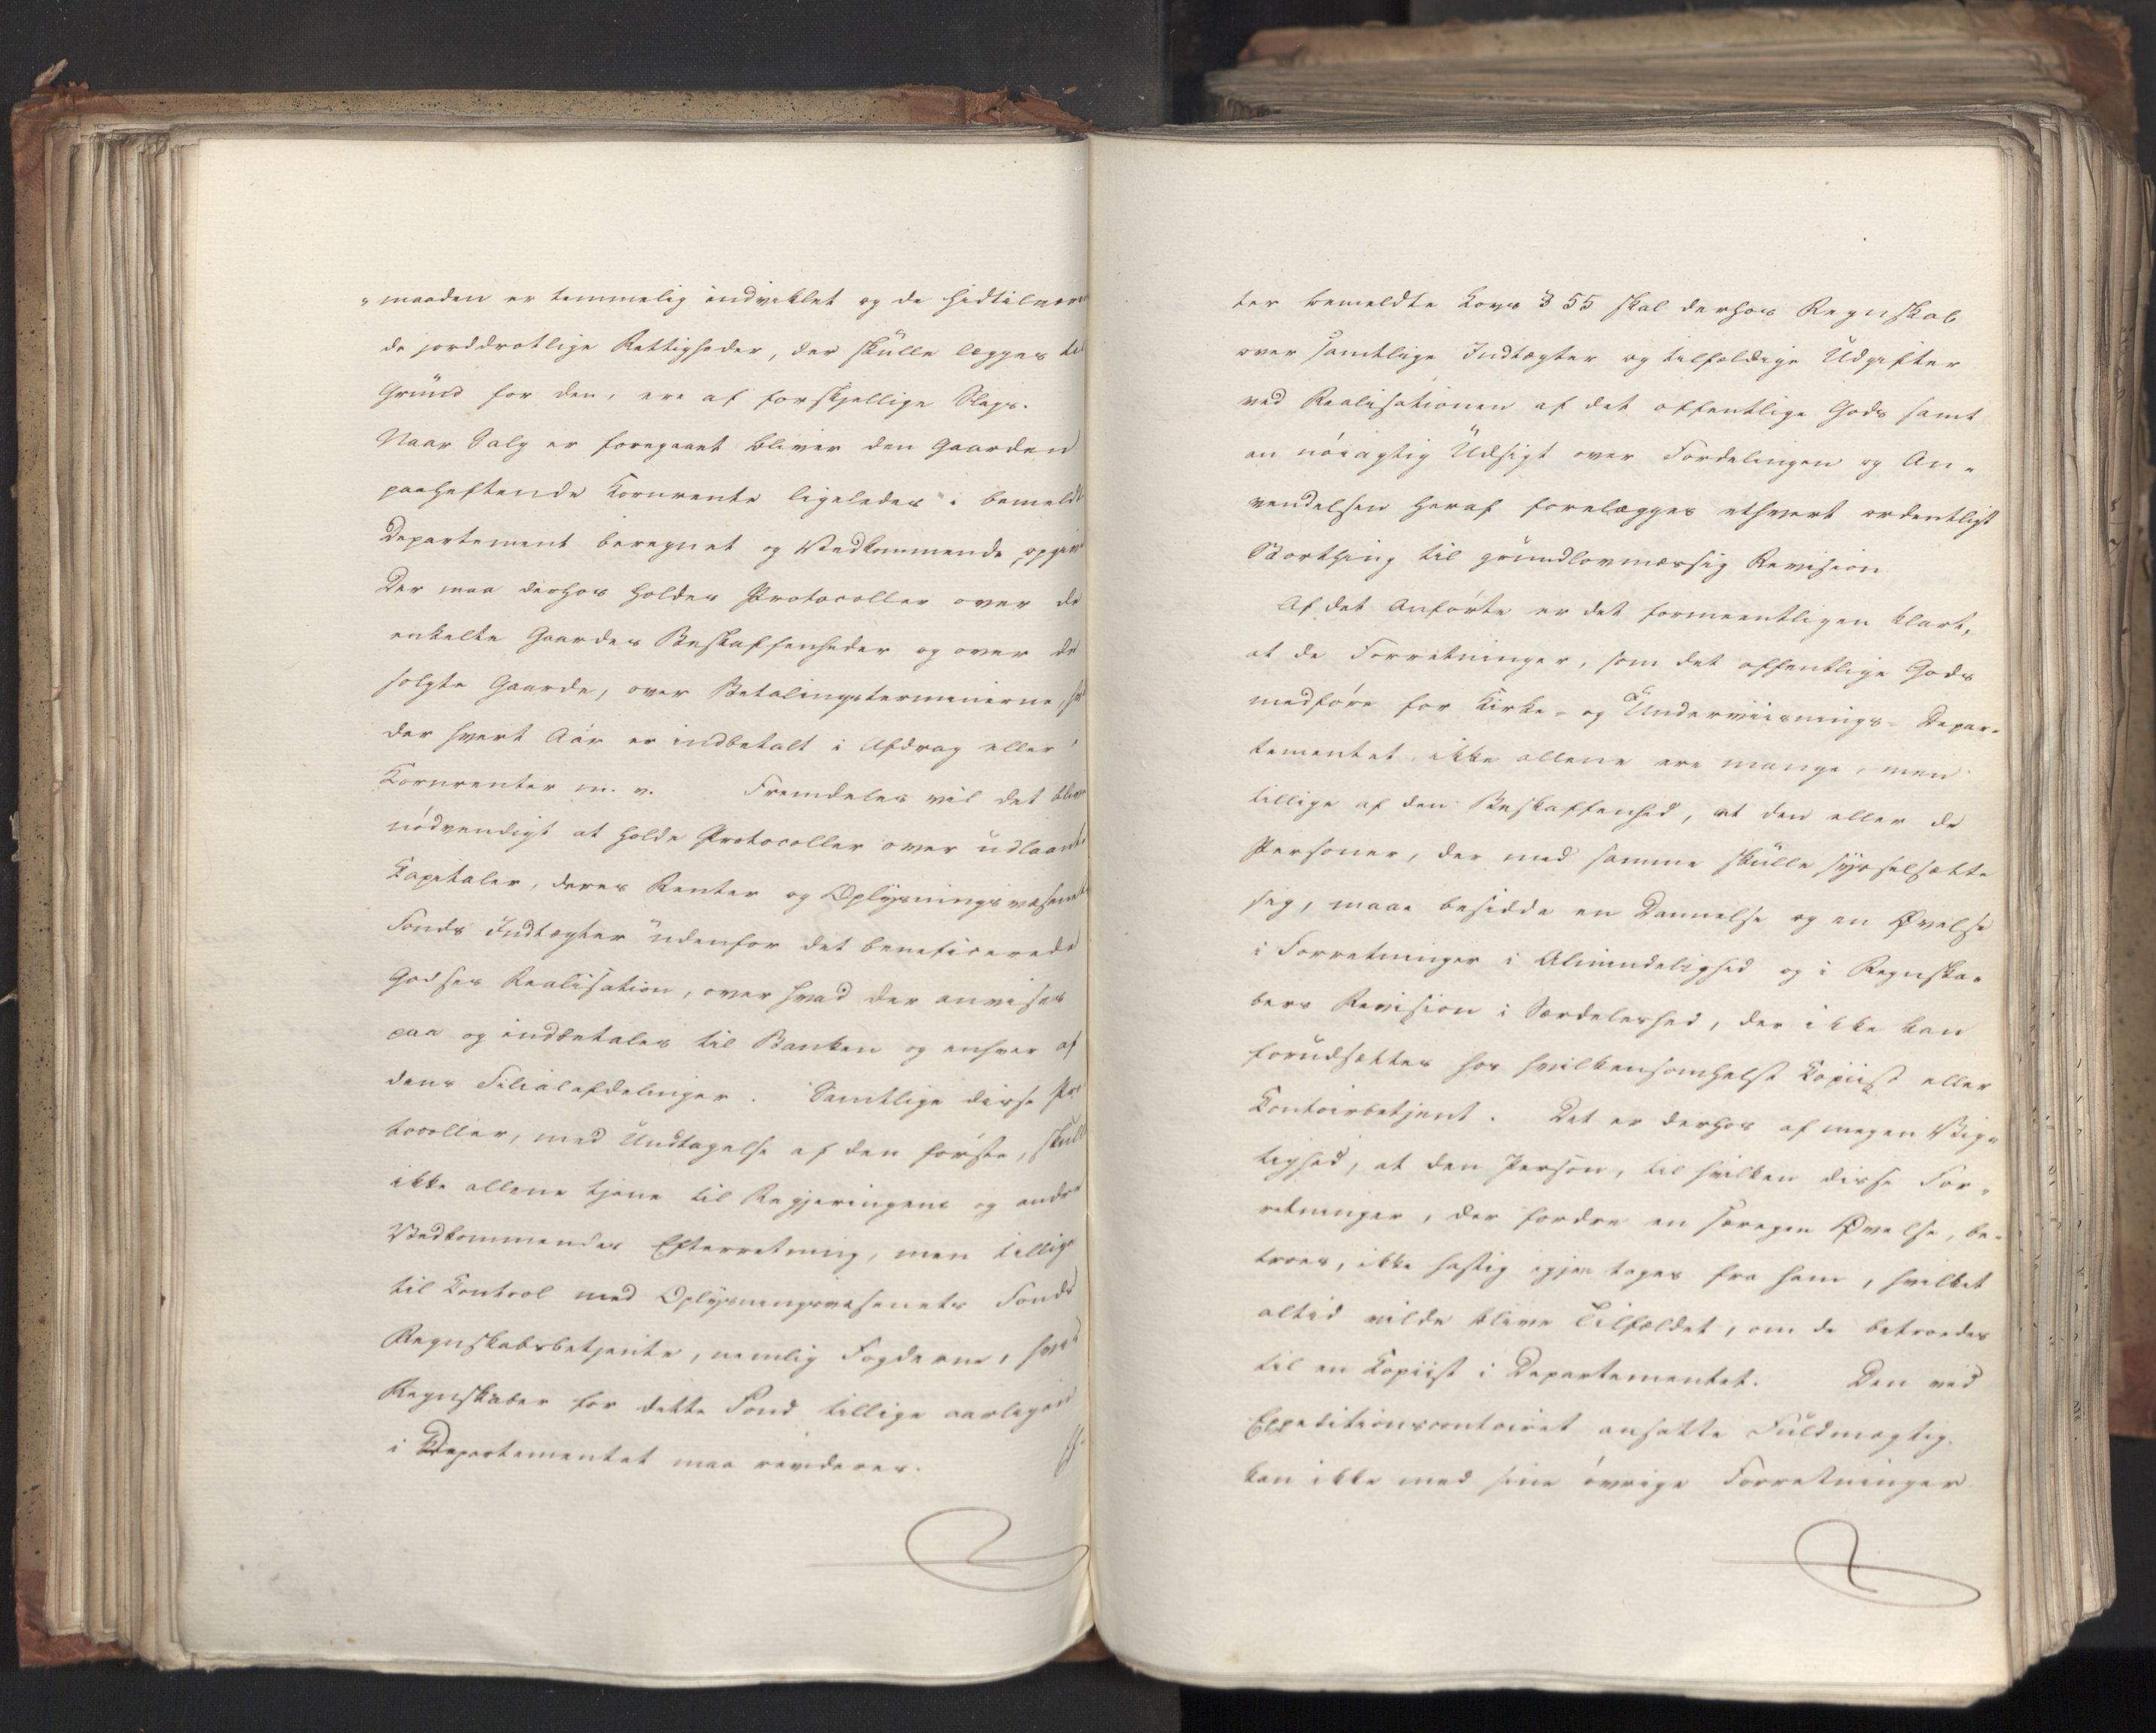 "maaden er temmelig indviklet og de hidtilværen
de jorddrotlige Rettigheder, der skulle lægges til
Grund for den, ere af forskjellige Slags.
Naar Salg er foregaaet bliver den Gaarden
paaheftende Kornrente ligeledes i bemeldte
Departement beregnet og Vedkommende opgive
Der maa derhos holdes Protocoller over de
enkelte Gaardes Beskaffenheder og over de
solgte Gaarde, over Betalingsterminerne,
der hvert Aar er indbetalt i Afdrag eller i
Kornrenter m. v. Fremdeles vil det blive
nödvendigt at holde Protocoller over udlaante
Kapitaler, deres Renter og Oplysningsvæsenets
Fonds Indtægter udenfor det beneficerede
Godses Realisation, over hvad der anvises
paa og indbetales til Banken og enhver af
dens Filialafdelinger. Samtlige disse Pro
tocoller, med Undtagelse af den förste, skulle
ikke allene tjene til Regjeringens og andre
Vedkommendes Efterretning, men tillige
til Kontrol med Oplysningsvæsenets Fonds
Regnskabsbetjente, nemlig Fogderne, hvis
Regnskaber for dette Fond tillige aarligen
i Departementet maa revideres. Ef-
ter bemeldte Lovs § 55 skal derhos Regnskab
over samtlige Indtægter og tilfældige Udgifter
ved Realisationen af det offentlige Gods samt
en nöiagtig Udsigt over Fordelingen og An-
vendelsen heraf forelægges ethvert ordentligt
Storthing til grundlovmæssig Revision
Af det Anförte er det formeentligen klart,
at de Forretninger, som det offentlige Gods
medföre for Kirke- og Underviisnings-Depar-
tementet ikke allene ere mange, men
tillige af den Beskaffenhed, at den eller de
Personer, der med samme skulle sysselsætte
sig, maae besidde en Dannelse og en Øvelse
i Forretninger i Almindelighed og i Regnska-
bers Revision i Særdeleshed, der ikke kan
forudsættes hos hvilkensomhelst Kopiist eller
Kontoirbetjent. Det er derhos af megen Vig-
tighed, at den Person, til hvilken disse For-
retninger, der fordre en særegen Øvelse, be-
troes, ikke hastig igjen tages fra ham, hvilket
altid vilde blive Tilfældet, om de betroedes
til en Kopiist i Departementet. Den ved
Expeditionscontoiret ansatte Fuldmægtig
kan ikke med sine övrige Forretninger